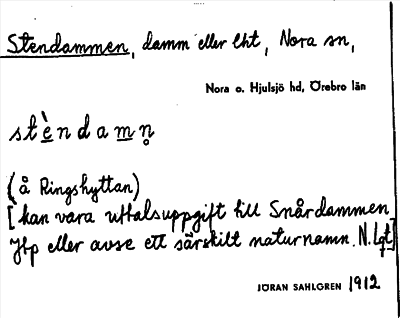 Stendammen, damm eller lht, Nora sn,
Nora o. Hjulsjö hd, Örebro län
stὲndamn̥
(å Ringshyttan)
[kan vara uttalsuppgift till Snårdammen
Jtp eller avse ett särskilt naturnamn. N.Lgt]
JÖRAN SAHLGREN 1912